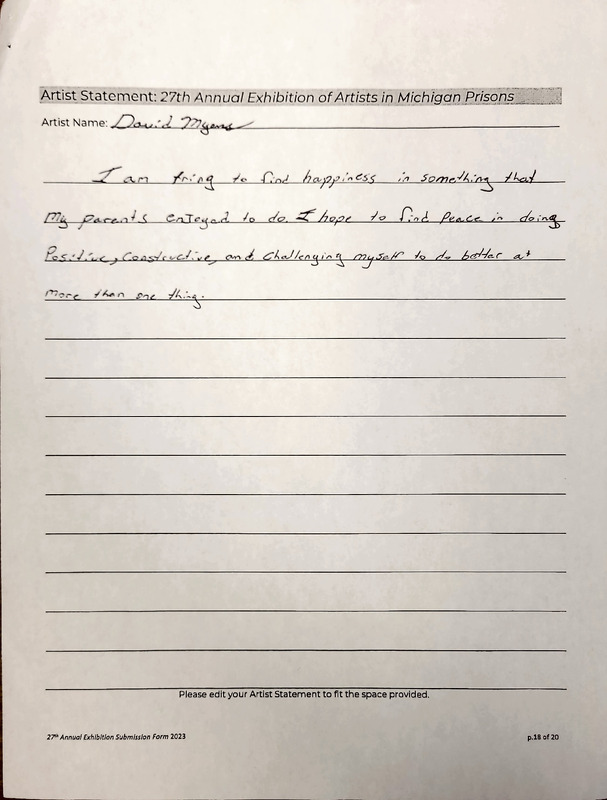 Artist Statement: 27th Annual Exhibition of Artists in Michigan Prisons
Artist Name: David Myers
I am tring to find happiness in something that
my parents enjoyed to do. I hope to find Peace in doing
Positive, Constructive, and challenging myself to do better at
more than one thing.
Please edit your Artist Statement to fit the space provided.
27th Annual Exhibition Submission Form 2023
p.18 of 20